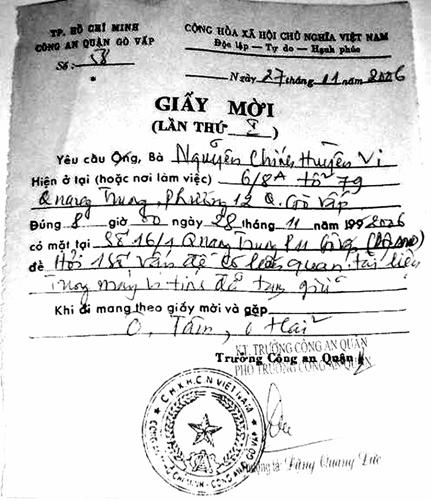 TP. HỒ CHÍ MINH
CÔNG AN QUẬN GÒ VẤP
Số: 58
CỘNG HÒA XÃ HỘI CHỦ NGHĨA VIỆT NAM
Độc lập — Tự do — Hạnh phúc
Ngày 27 tháng 11 năm 2006
GIẤY MỜI
(LẦN THỨ I)
Yêu cầu Ông, Bà Nguyễn Chính
Hiện ở tại (hoặc nơi làm việc) 6/8A tổ 79
Quang Trung, phường 12 Q. Gò Vấp
Đúng 8 giờ 00 ngày 28 tháng 11 năm 199 2006
có mặt tại Số 16/1 Quang Trung
đề Hỏi 1 số vấn đề có liên quan tài liệu
Trong máy vi tính đã tạm giữ
Khi đi mang theo giấy mời và gặp
O, Tám, O Hai
Trưởng Công an Quận
KT. TRƯỞNG CÔNG AN QUẬN
PHÓ TRƯỞNG CÔNG AN QUẬN
C.H.X.H.C.N VIỆT NAM
CÔNG AN Q. GÒ VẤP
Đặng Quang Đức